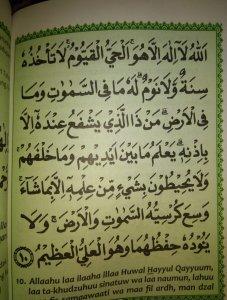 اَللّٰهُ لَآ اِلٰهَ اِلَّا هُوَ ۚ اَلْحَيُّ الْقَيُّوْمُ ۚ لَا تَأْخُذُهٗ
سِنَةٌ وَّلَا نَوْمٌ ۗ لَهٗ مَا فِى السَّمٰوٰتِ وَمَا
فِى الْاَرْضِ ۗ مَنْ ذَا الَّذِيْ يَشْفَعُ عِنْدَهٗٓ اِلَّا
بِاِذْنِهٖ ۗ يَعْلَمُ مَا بَيْنَ اَيْدِيْهِمْ وَمَا خَلْفَهُمْ ۚ
وَلَا يُحِيْطُوْنَ بِشَيْءٍ مِّنْ عِلْمِهٖٓ اِلَّا بِمَا شَآءَ ۚ
وَسِعَ كُرْسِيُّهُ السَّمٰوٰتِ وَالْاَرْضَ ۚ وَلَا
يَـُٔوْدُهٗ حِفْظُهُمَا ۚ وَهُوَ الْعَلِيُّ الْعَظِيْمُ ﴿١٠﴾
10. Allaahu laa ilaaha illaa Huwal Hayyul Qayyuum,
laa ta-khudzuhuu sinatuw wa laa naumun, lahuu
samaawaati wa maa fil ardh, man dzal